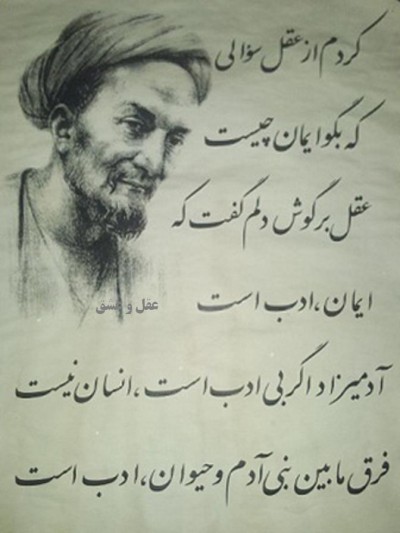 کردم از عقل سؤالی
که بگو ایمان چیست
عقل بر گوش دلم گفت که
ایمان، ادب است
عقل و عشق
آدمیزاد اگر بی ادب است، انسان نیست
فرق ما بین بنی آدم و حیوان، ادب است